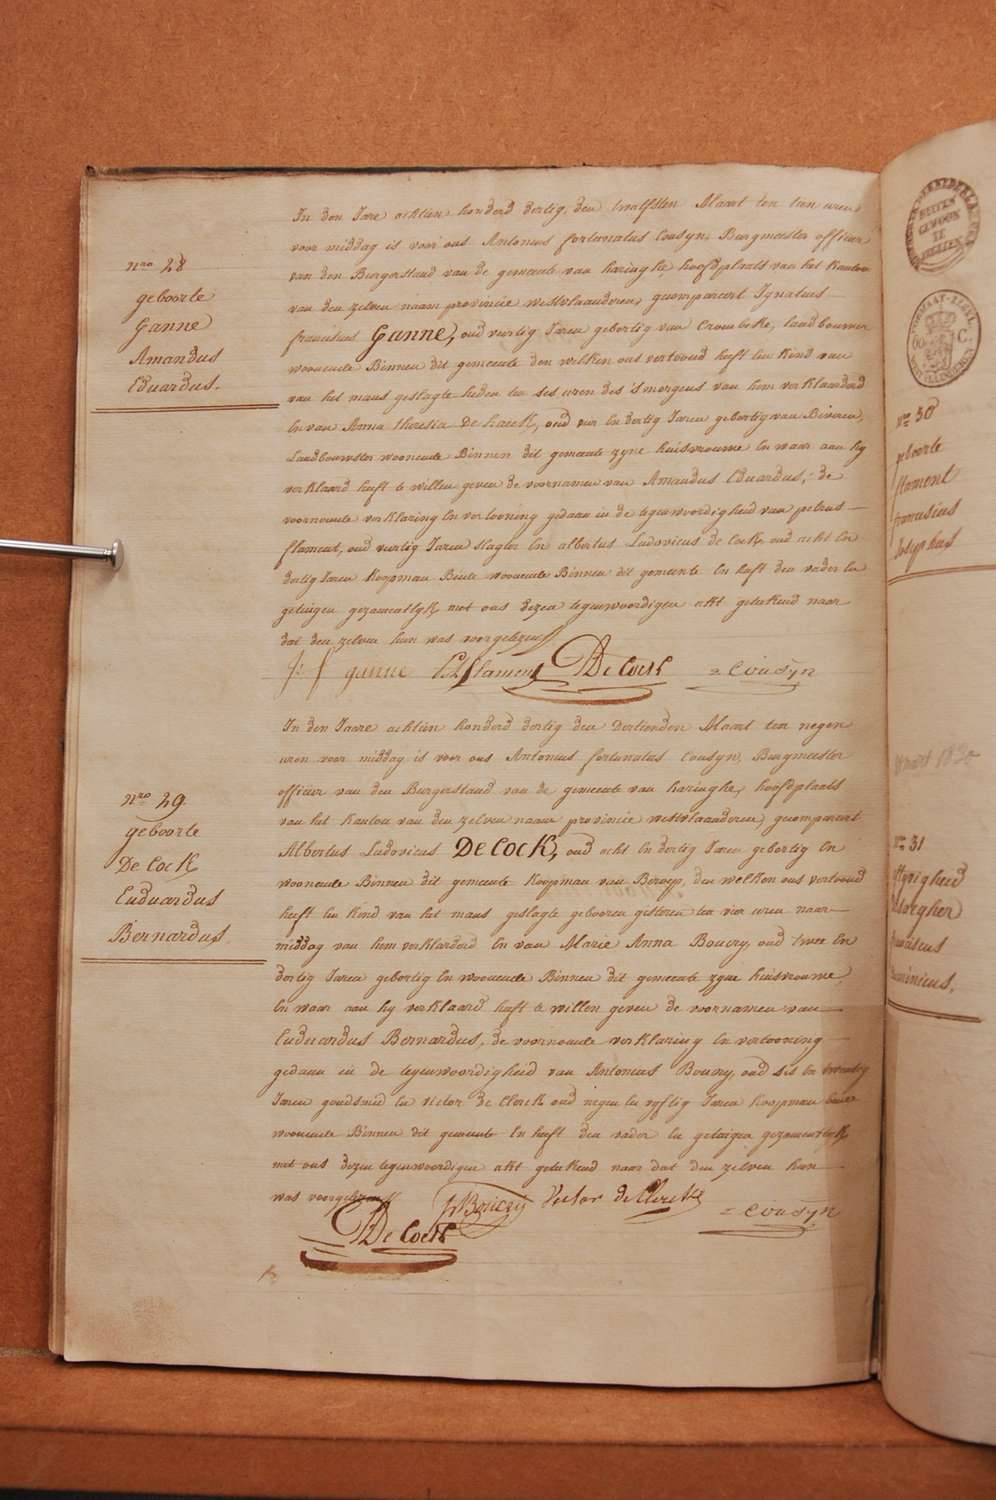 nro 28
geboorte
Ganne
Amandus
Eduardus.
In den Jare achtien honderd dertig, den twalfsten Maart ten tien uren
voor middag is voor ons Antonius fortunatus Cousyn, Burgmeester officier
van den Burgerstand van de gemeente van haringhe, hoofdplaats van het kanton
van den zelven naam provincie westvlaanderen, gecompareert Ignatius
franciscus Ganne, oud veertig Jaren gebortig van Crombeke, landbouwer
woonende Binnen dit gemeente den welken ons vertoond heeft een kind van
van het mans geslagte heden ten ses uren des 'smorgens van hem verklaarderd
en van Anna theresia De haeck, oud vier en dertig Jaren gebortig van Beveren,
Landbouwster woonende Binnen dit gemeente zyne huisvrouwe en waar aan hy
verklaard heeft te willen geven de voornamen van Amandus Eduardus; de
voornoemde verklaring en vertooning gedaan in de tegenwoordigheid van petrus
flament, oud veertig Jaren slagter en albertus Ludovicus de Cock, oud acht en
dertig Jaren koopman Beide woonende Binnen dit gemeente en heeft den vader en
getuigen gezamentlyk met ons dezen tegenwoordigen akt geteekend naar
dat den zelven hun was voorgelezen
J: f ganne flament De Cock Cousyn
nro 29
geboorte
De Cock
Euduardus
Bernardus.
In den Jaare achtien honderd dertig den dertienden Maart ten negen
uren voor middag is voor ons Antonius fortunatus Cousyn, Burgmeester
officier van den Burgerstand van de gemeente van haringhe, hoofdplaats
van het kanton van den zelven naam provincie westvlaanderen, gecompareert
Albertus Ludovicus De Cock, oud acht en dertig Jaren gebortig en
woonende Binnen dit gemeente koopman van Beroep, den welken ons vertoond
heeft een kind van het mans geslagte gebooren gisteren ten vier uren naar
middag van hem verklarderd en van Marie Anna Boucry, oud twee en
dertig Jaren gebortig en woonende Binnen dit gemeente zyne huisvrouwe,
en waar aan hy verklaard heeft te willen geven de voornamen van
Euduardus Bernardus, de voornoemde verklaring en vertooning
gedaan in de tegenwoordigheid van Antonius Boucry, oud ses en twentig
Jaren goudsmid en victor de Clerck oud negen en vyftig Jaren koopman beide
woonende Binnen dit gemeente en heeft den vader en getuigen gezamentlyk
met ons dezen tegenwoordigen akt geteekend naar dat den zelven hun
was voorgelezen
De Cock Boucry Victor de Clerck Cousyn
BUITEN
GEWOON
TE
60 C.
nro 30
geboorte
flament
franciscus
Josephus
maart 1830
nro 31